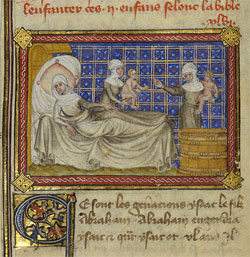 lenfanter ces ·ij· enfans selonc la bible
Ce sont les genacions ysaac le filz
Abraham. Abraham engendra
ysaac et quant ysaac ot ·xl· ans Il